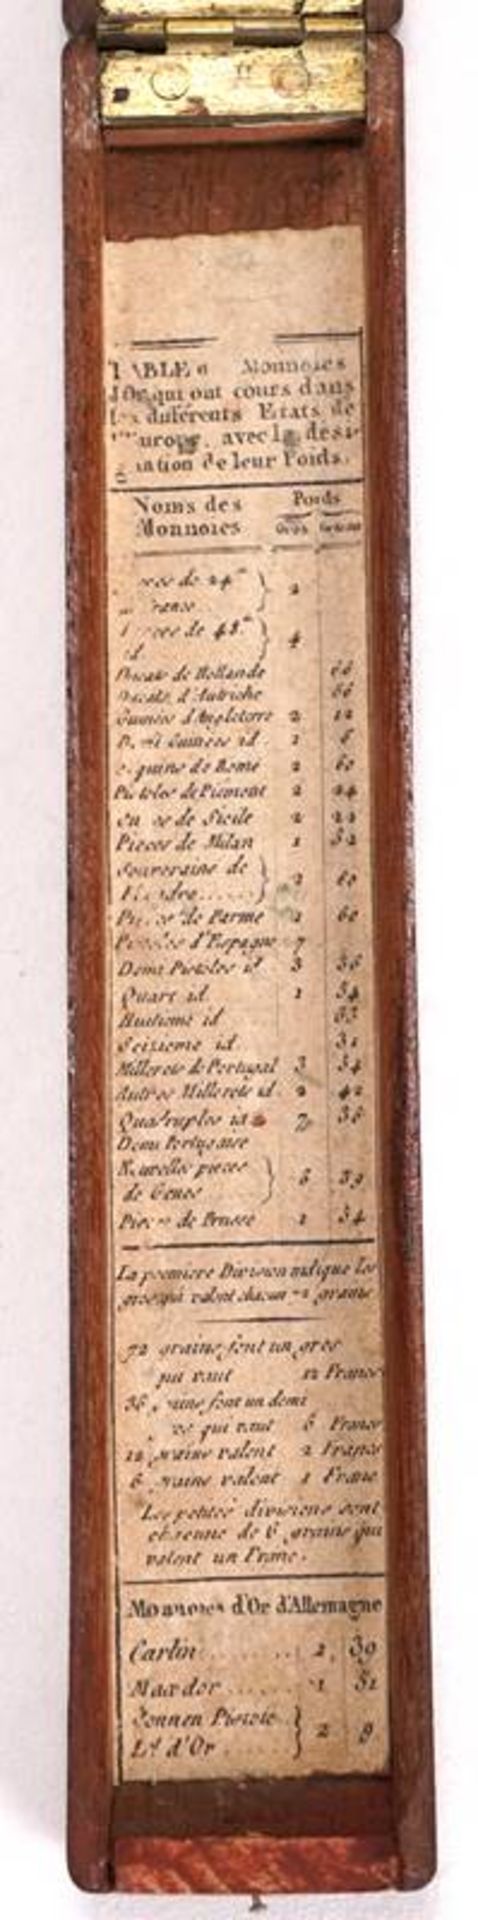 TABLE Monnoies
d'Or qui ont cours dans
les différents Etats de
l'Europe, avec la desi-
gnation de leur Poids.
Noms des Monnoies Poids
Gros Grains
Pieces de 24 tt
de France } 2
Pieces de 48 tt
id. } 4
Ducats de Hollande 66
Ducats d'Autriche 66
Guinées d'Angleterre 2 12
Demi Guinées id 1 6
Sequins de Rome 2 60
Pistoles de Piemont 2 24
Onces de Sicile 2 22
Pieces de Milan 1 52
Souveraine de
Flandre...... } 2 60
Pieces de Parme 1 60
Pistoles d'Espagne 7
Demi Pistoles id 3 36
Quart id 1 54
Huitieme id 63
Seizieme id 31
Millerois de Portugal 3 54
Autres Millerois id. 2 42
Quadruples id 7 36
Demi Portugaise
Nouvelles pieces
de Genes } 6 39
Pieces de Prusse 1 54
La premiere Division indique les
gros qui valent chacun 72 grains
72 grains font un gros
qui vaut 12 Francs
36 grains font un demi
gros qui vaut 6 Francs
12 grains valent 2 Francs
6 grains valent 1 Franc
Les petites divisions sont
chacune de 6 grains qui
valent un Franc.
Monnoies d'Or d'Allemagne
Carlin ........ 2 39
Maxdor ...... 1 51
Sonnen Pistole
Ls. d'Or ...... } 2 9